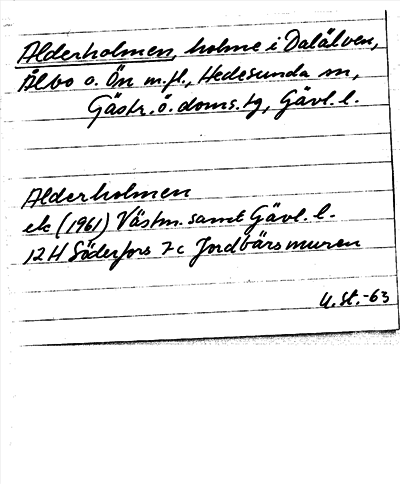 Alderholmen, holme i Dalälven,
Ålbo o. Ön m.fl., Hedesunda sn,
Gästr. ö. doms. tg, Gävl. l.
Alderholmen
ek (1961) Västm. samt Gävl. l.
12 H Söderfors 7 c Jordbärsmuren
U. St. -63